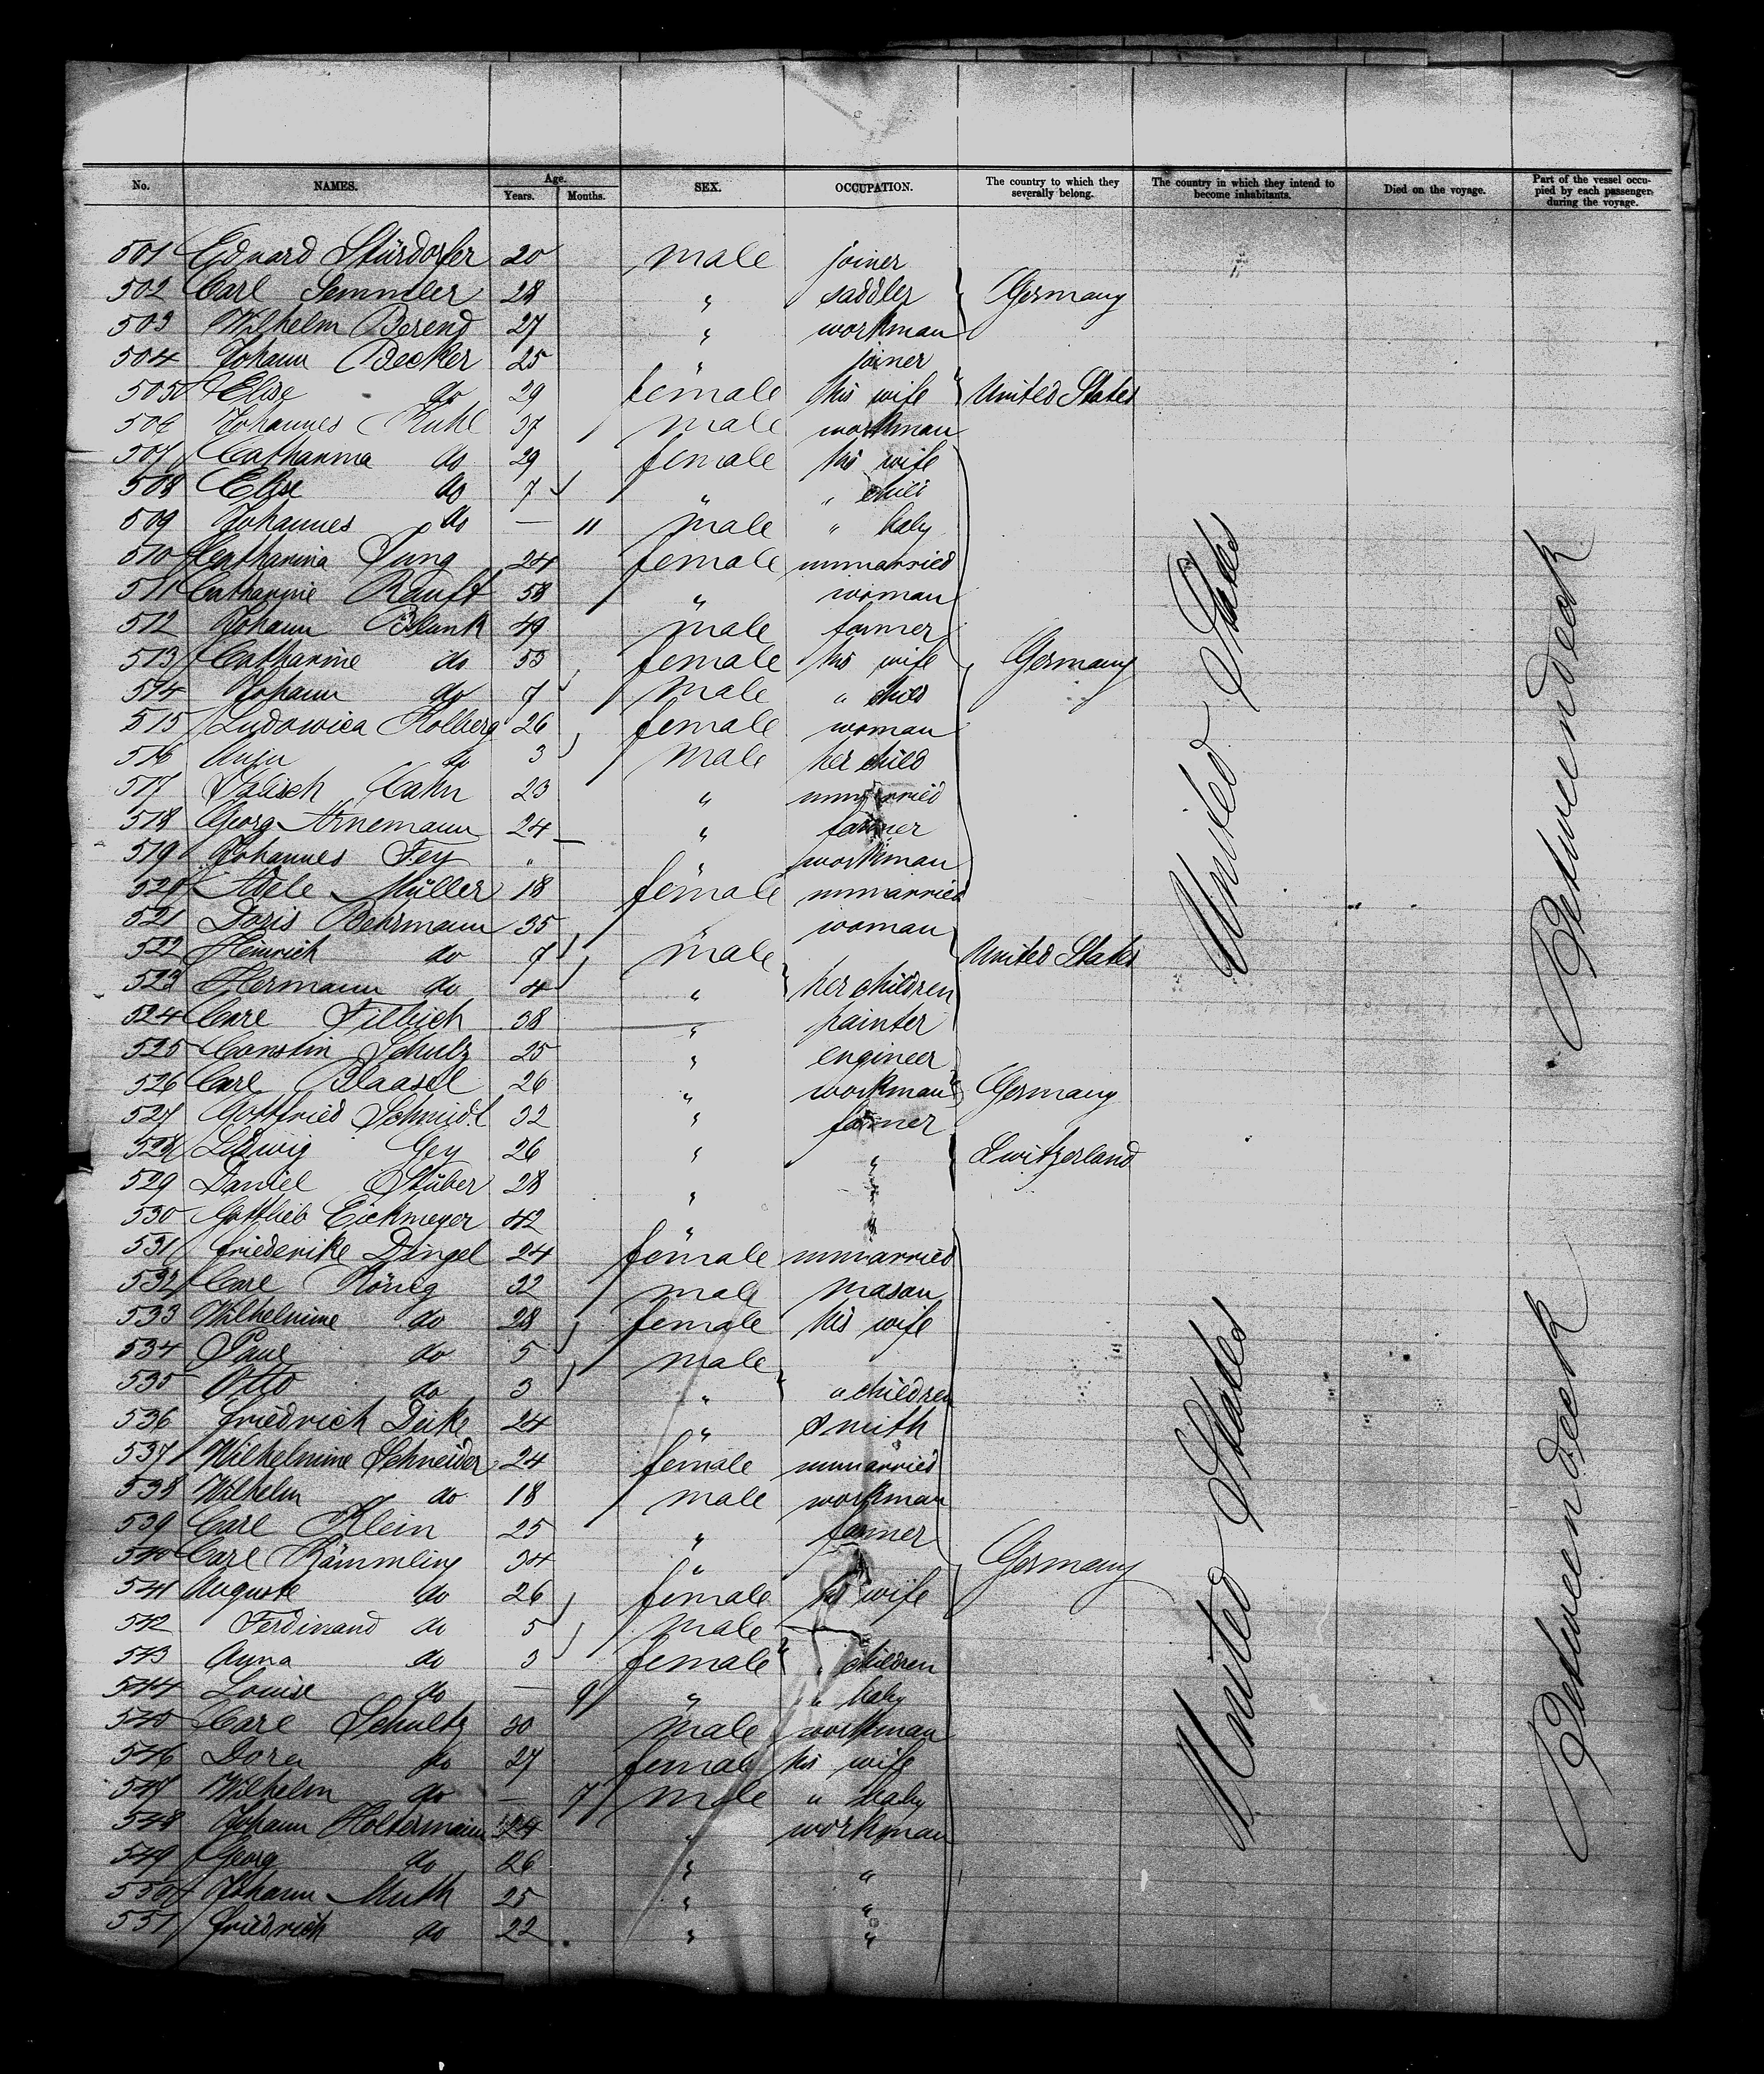 No. NAMES. Age. Years. Months. SEX. OCCUPATION. The country to which they severally belong. The country in which they intend to become inhabitants. Died on the voyage. Part of the vessel occupied by each passenger during the voyage.
501 Eduard Stürdorfer 20 male joiner
502 Carl Semmler 28 " saddler Germany
503 Wilhelm Berend 27 " workman
504 Johann Becker 25 " joiner
505 Elise do 29 female his wife United States
506 Johannes Kuhl 37 male workman
507 Catharina do 29 female his wife
508 Elise do 7 " " child
509 Johannes do — 11 male " baby
510 Catharina Jung 24 female unmarried
511 Catharine Rauft 58 " woman
512 Johann Blank 49 male farmer
513 Catharine do 53 female his wife Germany
514 Johann do 7 male " child
515 Ludowica Holberg 26 female woman
516 do 3 male her child
517 Cahn 23 " unmarried
518 Georg Arnemann 24 " farmer
519 Johannes Fey " " workman
520 Adele Müller 18 female unmarried
521 Doris Behrmann 35 " woman
522 Heinrich do 7 male United States
523 Hermann do 4 " her children
524 Carl 38 " painter
525 Schulz 25 " engineer
526 Carl Blaasel 26 " workman Germany
527 Gottfried Schmidt 32 " farmer
528 Ludwig Gey 26 " " Switzerland
529 Daniel Stüber 28 " "
530 Gottlieb Eickmeyer 42 " "
531 Friederike Dingel 24 female unmarried
532 Carl König 32 male mason
533 Wilhelmine do 28 female his wife
534 Paul do 5 male
535 Otto do 3 " " children
536 Friedrich Deike 24 " smith
537 Wilhelmine Schneider 24 female unmarried
538 Wilhelm do 18 male workman
539 Carl Klein 25 " farmer
540 Carl Kämmling 34 " " Germany
541 Auguste do 26 female his wife
542 Ferdinand do 5 male
543 Anna do 3 female " children
544 Louise do — 9 " " baby
545 Carl Schultz 30 male workman
546 Dora do 27 female his wife
547 Wilhelm do — 7 male " baby
548 Johann Holtermann 24 " workman
549 Georg do 26 " "
550 Johann Muth 25 " "
551 Friedrich do 22 " "
United States
Between deck
United States
Between deck